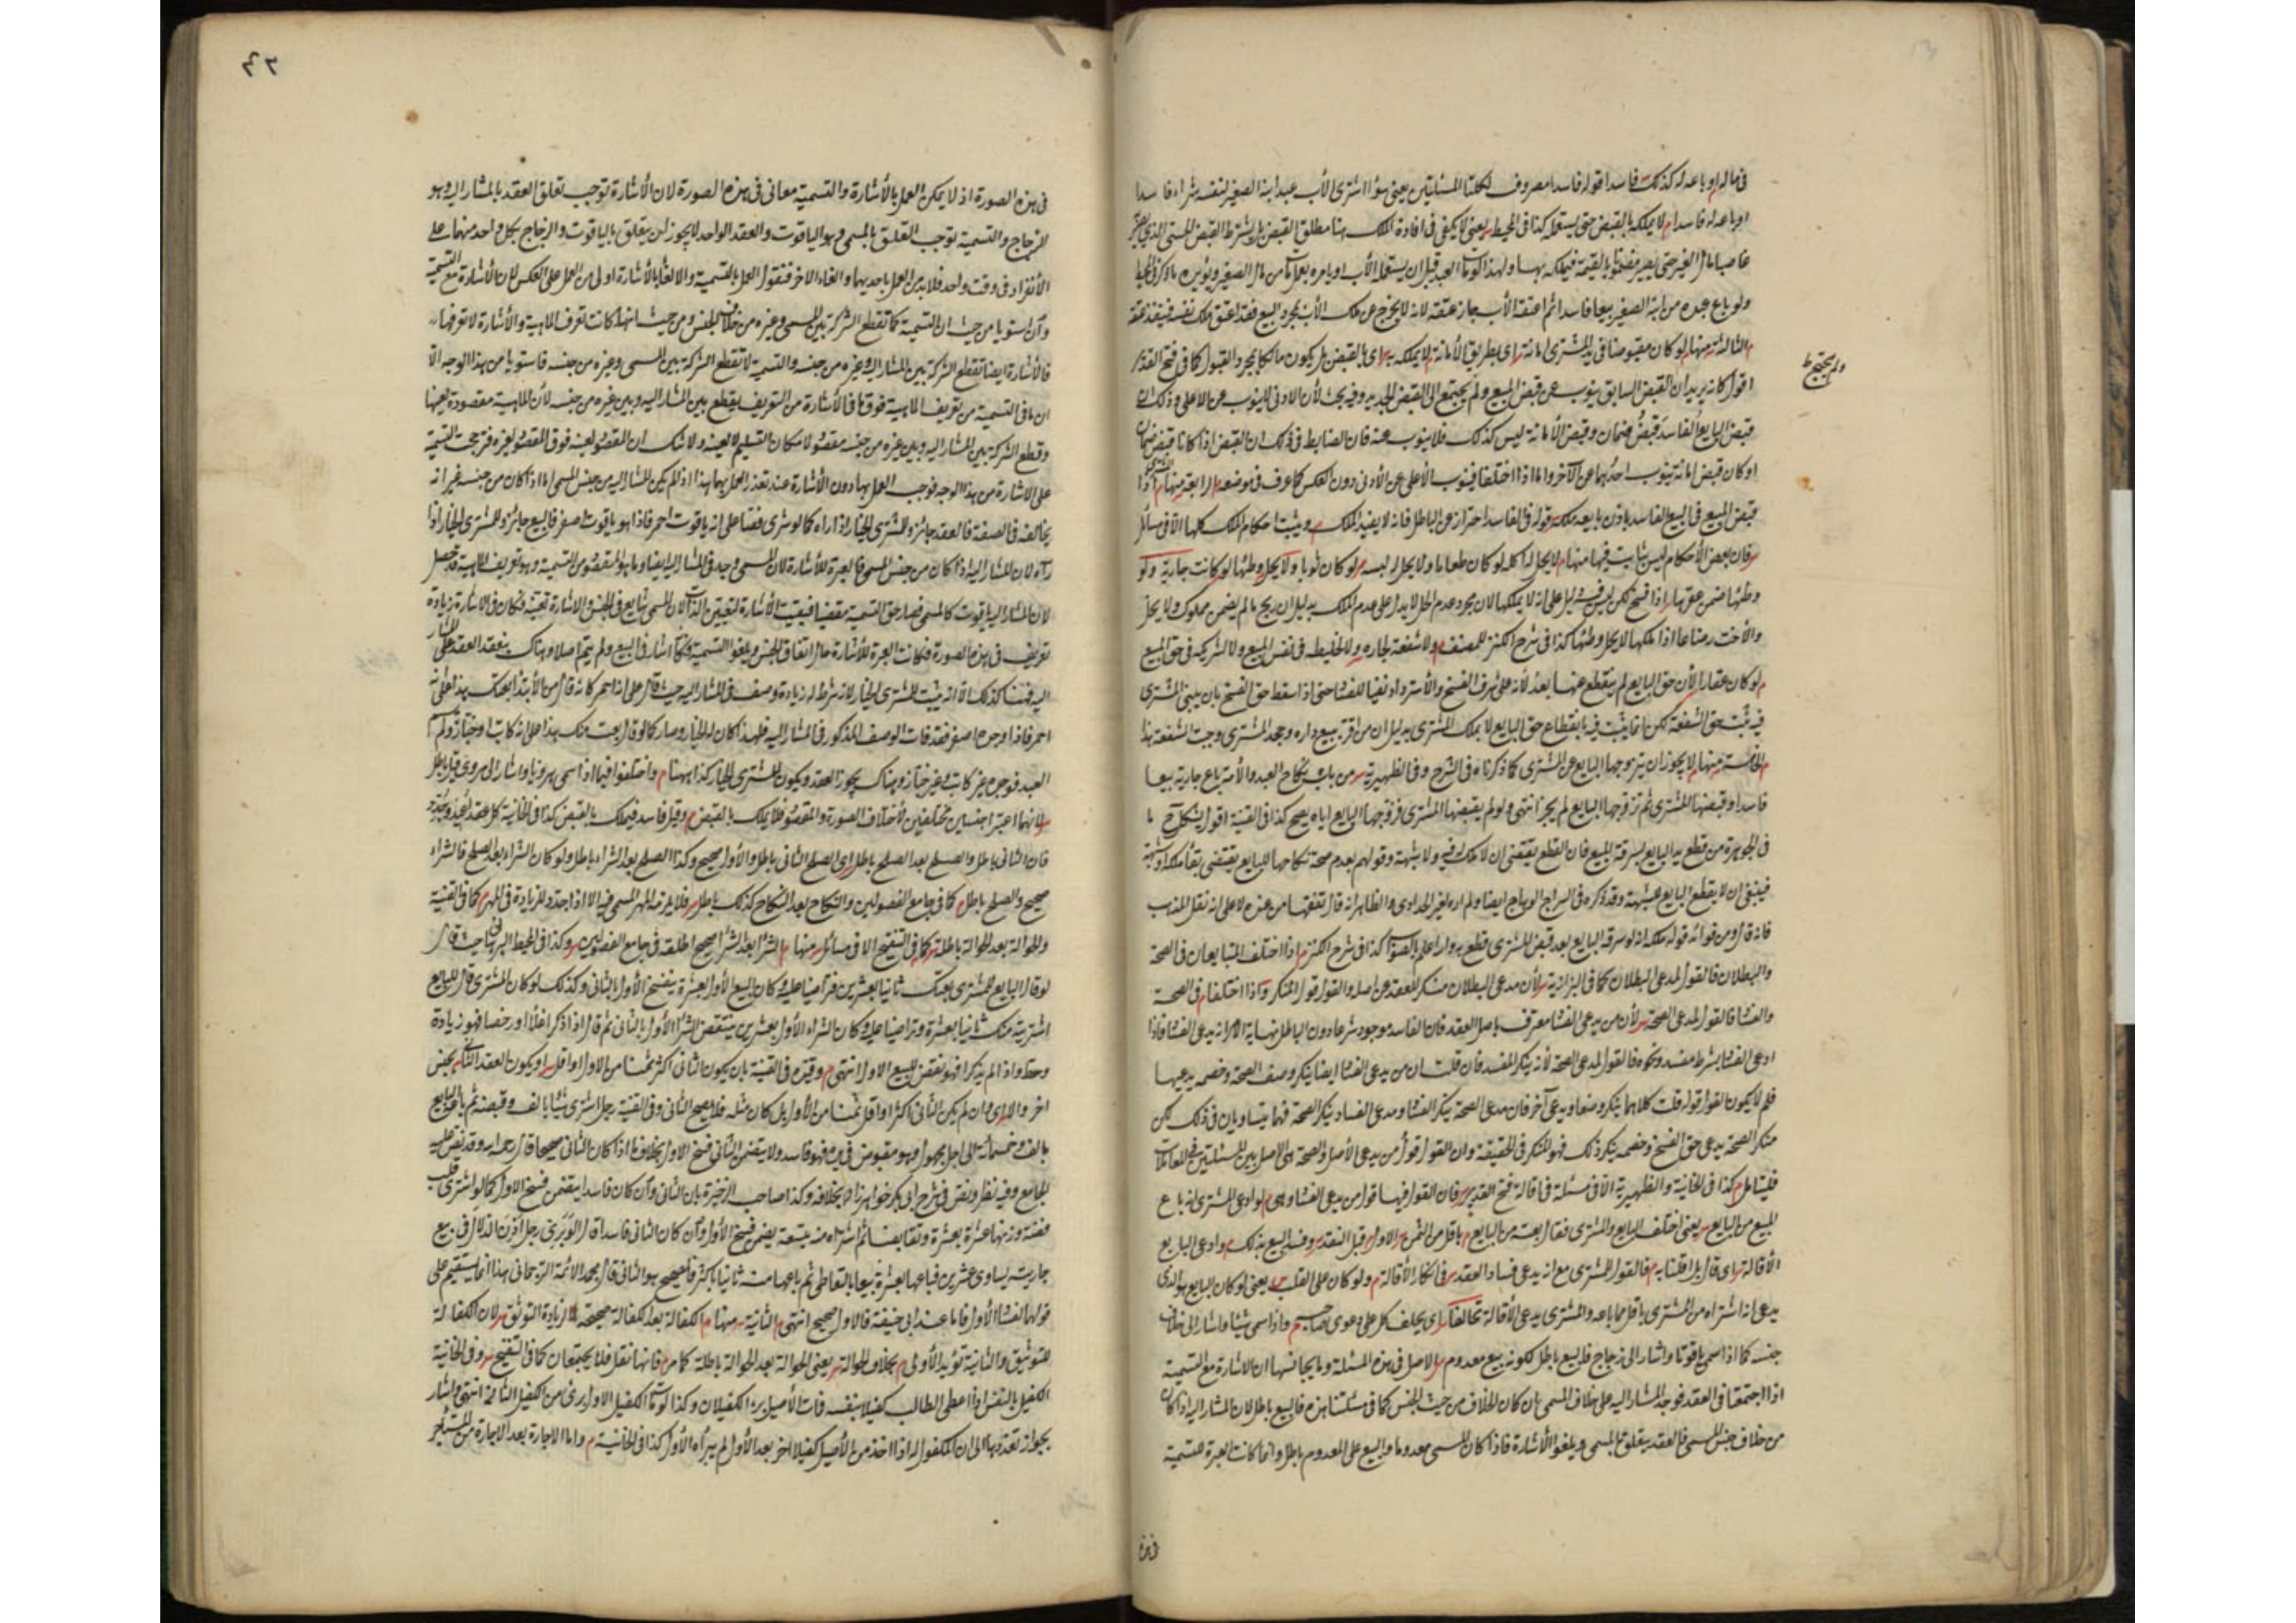 في ماله او باعه له كذلك فاسدا قوله فاسدا مصروف لكلتا المسئلتين يعني لو اشترى الأب عبد ابنه الصغير لنفسه شراء فاسدا
او باعه له فاسدا م لا يملكه بالقبض حتى يستعمله كذا في المحيط يعني لا يكفي في افادة الملك هنا مطلق القبض بل يشترط القبض الحسي الذي يصير
غاصبا مال الغير حتى يصير مضمونا بالقيمة فيملكه بها ولهذا لو مات العبد قبل ان يستعمله الأب او يامره بعمل مات من مال الصغير ويؤيده ما ذكر في المحيط
ولو باع عبده من ابنه الصغير بيعا فاسدا ثم اعتقه الأب جاز عتقه لانه لا يخرج عن ملك الأب بمجرد البيع فقد اعتق ملك نفسه فينفذ عتقه
م الثالثة منها لو كان مقبوضا في يد المشترى امانة اي بطريق الأمانة لا يملكه به اي بالقبض بل يكون مالكا بمجرد القبول كما في فتح القدير
اقول كانه يريد ان القبض السابق ينوب عن قبض المبيع ولم يحتج الى القبض الجديد وفيه بحث لأن الادنى لا ينوب عن الاعلى وذلك ان
ولم يحتج ط
قبض البايع الفاسد قبض ضمان وقبض الأمانة ليس كذلك فلا ينوب عنه فان الضابط في ذلك ان القبض اذا كانا قبض ضمان
او كان قبض امانة ينوب احدهما عن الآخر واما اذا اختلفا فينوب الأعلى عن الأدنى دون العكس كما عرف في موضعه م الرابعة منها اذا المشترى
قبض المبيع في البيع الفاسد باذن بايعه ملكه قوله في الفاسد احتراز عن الباطل فانه لا يفيد الملك م ويثبت احكام الملك كلها الا في مسائل
فان بعض الأحكام ليس بثابت فيها منها م لا يحل له اكله لو كان طعاما ولا يحل له لبسه لو كان ثوبا ولا يحل وطئها لو كانت جارية ولو
وطئها ضمن عقرها اذا فسخ لكن ليس فيه دليل على انه لا يملكها لان مجرد عدم الحل لا يدل على عدم الملك بدليل ان ربح ما لم يضمن مملوك ولا يحل
والأخت رضاعا اذا ملكها لا يحل وطئها كذا في شرح الكنز للمصنف م ولا شفعة لجاره ولا لخليطه في نفس المبيع ولا لشريكه في حق المبيع
م لو كان عقارا لأن حق البايع لم ينقطع عنها بعد لأنه على شرف الفسخ والاسترداد نفيا للفساد حتى اذا سقط حق الفسخ بان يبني المشترى
فيه ثبت حق الشفعة لكن انما يثبت فيه بانقطاع حق البايع لا بملك المشترى بدليل ان من اقر ببيع داره وجحد المشترى وجبت الشفعة هذا
م الخامسة منها لا يجوز ان يتزوجها البايع عن المشترى كما ذكرناه في الشرح وفي الظهيرية من باب نكاح العبد والأمة باع جارية بيعا
فاسدا وقبضها المشترى ثم تزوجها البايع لم يجز انتهى ولو لم يقبضها المشترى فزوجها البايع اياه يصح كذا في القنية اقول يشكل م ما
في الجوهرة من قطع يد البايع بسرقة المبيع فان القطع يقتضي ان لا ملك له فيه ولا شبهة وقولهم بعدم صحة نكاحها للبايع يقتضي بقاء ملكه او شبهة
فينبغي ان لا يقطع البايع للشبهة وقد ذكره في السراج الوهاج ايضا ولم اره لغير الحدادي والظاهر انه قال تفقها من عنده لا على انه نقل المذهب
فانه قال ومن فوائد قوله ملكه انه لو سرقه البايع بعد قبض المشترى قطع به والله اعلم بالصواب كذا في شرح الكنز م اذا اختلف المتبايعان في الصحة
والبطلان فالقول لمدعي البطلان كما في البزازية لأن مدعي البطلان منكر للعقد من اصله والقول قول المنكر واذا اختلفا م في الصحة
والفساد فالقول لمدعي الصحة لأن من يدعي الفساد معترف باصل العقد فان الفاسد موجود شرعا دون الباطل نهاية الامر انه يدعي الفساد فاذا
ادعى الفساد بشرط مفسد ونحوه فالقول لمدعي الصحة لأنه ينكر المفسد فان قلت ان من يدعي الفساد ايضا ينكر وصف الصحة وخصمه يدعيها
فلم لا يكون القول قوله قلت كلاهما ينكر وصفا ويدعي آخر فان مدعي الصحة ينكر الفساد ومدعي الفساد ينكر الصحة فهما يتساويان في ذلك لكن
منكر الصحة يدعي حق الفسخ وخصمه ينكر ذلك فهو المنكر في الحقيقة وان القول قول من يدعي الأصل والصحة هي الاصل بين المسلمين في المعاملات
فليتامل م كذا في الخانية والظهيرية الا في مسئلة في اقالة فتح القدير فان القول فيها قول من يدعي الفساد وهي م لو ادعى المشترى انه باع
المبيع من البايع يعني اختلف البايع والمشترى فقال بعته من البايع م باقل من الثمن الاول م قبل النقد وفسد البيع بذلك وادعى البايع
الأقالة اي قال بل اقلنا به م فالقول للمشترى مع انه يدعي فساد العقد في انكار الأقالة م ولو كان على القلب يعني لو كان البايع هو الذي
يدعي انه اشتراه من المشترى باقل مما باعه والمشترى يدعي الأقالة تحالفا اي يحلف كل على دعوى صاحبه م واذا سمى شيئا واشار الى خلاف
جنسه كما اذا سمى ياقوتا واشار الى زجاج فالبيع باطل لكونه بيع معدوم والاصل في هذه المسئلة وما يجانسها ان الاشارة مع التسمية
اذا اجتمعتا في العقد فوجد المشار اليه على خلاف المسمى بان كان الخلاف من حيث الجنس كما في مسئلتنا هذه فالبيع باطل لان المشار اليه اذا كان
من خلاف جنس المسمى فالعقد يتعلق بالمسمى ويلغو الأشارة فاذا كان المسمى معدوما والبيع على المعدوم باطل وانما كانت العبرة للتسمية
في هذه
٤٢
في هذه الصورة اذ لا يمكن العمل بالأشارة والتسمية معا في هذه الصورة لان الأشارة توجب تعلق العقد بالمشار اليه وهو
الزجاج والتسمية توجب التعلق بالمسمى وهو الياقوت والعقد الواحد لا يجوز ان يتعلق بالياقوت والزجاج بكل واحد منهما على
الأنفراد في وقت واحد فلا بد من العمل باحديهما والغاء الاخر فنقول العمل بالتسمية والالغاء بالأشارة اولى من العمل على العكس لان الأشارة مع التسمية
وان استويا من حيث ان التسمية كما تقطع الشركة بين المسمى وغيره من خلاف الجنس ومن حيث انها كانت تعرف الماهية والأشارة لا تعرفها
فالأشارة ايضا تقطع الشركة بين المشار اليه وغيره من جنسه والتسمية لا تقطع الشركة بين المسمى وغيره من جنسه فاستويا من هذا الوجه الا
ان ما في التسمية من تعريف الماهية فوق ما في الأشارة من التعريف بقطع بين المشار اليه وبين غيره من جنسه لأن الماهية مقصودة بعينها
وقطع الشركة بين المشار اليه وبين غيره من جنسه مقصود لامكان التسليم لا لعينه ولا شك ان المقصود لعينه فوق المقصود لغيره فترجحت التسمية
على الاشارة من هذا الوجه فوجب العمل بها دون الأشارة عند تعذر العمل بهما هذا اذا لم يكن المشار اليه من جنس المسمى اما اذا كان من جنسه غير انه
يخالفه في الصفة فالعقد جائز وللمشترى الخيار اذا راه كما لو شرى فصا على انه ياقوت احمر فاذا هو ياقوت اصفر فالبيع جائز وللمشترى الخيار اذا
رآه لان المشار اليه اذا كان من جنس المسمى فالعبرة للأشارة لان المسمى وجد في المشار اليه ايضا وما هو المقصود من التسمية وهو تعريف الماهية قد حصل
لان المشار اليه ياقوت كالمسمى فصار حق التسمية مقضيا فبقيت الأشارة لتعيين الذات لان المسمى شايع في الجنس والاشارة تعينه فكان في الاشارة زيادة
تعريف في هذه الصورة فكانت العبرة للأشارة حال اتفاق الجنس ويلغو التسمية وكانه اشار في البيع ولم يسم اصلا وهناك ينعقد العقد على المشار
اليه فهنا كذلك الا انه يثبت للمشترى الخيار لانه شرط له زيادة وصف في المشار اليه حيث قال على انه احمر كانه قال من الأبتداء بعتك هذا على انه
احمر فاذا وجده اصفر فقد فات الوصف المذكور في المشار اليه فلهذا كان له الخيار وصار كما لو قال بعت منك هذا على انه كاتب او خباز ولم
العبد فوجده غير كاتب وغير خباز وهناك يجوز العقد ويكون للمشترى الخيار كذا ههنا م واختلفوا فيما اذا سمى هرويا واشار الى مروي قيل باطل
لانهما اعتبرا جنسين مختلفين لأختلاف الصورة والمقصود فلا يملك بالقبض م وقيل فاسد فيملك بالقبض كذا في الخانية كل عقد اعيد وجدد
فان الثاني باطل والصلح بعد الصلح باطل اي الصلح الثاني باطل والأول صحيح وكذا الصلح بعد الشراء باطل ولو كان الشراء بعد الصلح فالشراء
صحيح والصلح باطل م كما في جامع الفصولين والنكاح بعد النكاح كذلك باطل فلا يلزمه المهر المسمى فيه الا اذا جدد للزيادة في المهر كما في القنية
والحوالة بعد الحوالة باطلة كما في التنقيح الا في مسائل منها م الشراء بعد الشراء صحيح اطلقه في جامع الفصولين وكذا في المحيط البرهاني حيث قال
لو قال البايع للمشترى بعتك ثانيا بعشرين فتراضيا عليه وكان البيع الأول بعشرة ينفسخ الأول بالثاني وكذلك لو كان المشترى قال للبايع
اشتريته منك ثانيا بعشرة وتراضيا عليه وكان الشراء الأول بعشرين ينتقض الشراء الأول بالثاني ثم قال اذا ذكرا غلاء او رخصا فهو زيادة
وحط واذا لم يذكرا فهو نقض للبيع الاول انتهى م وقيده في القنية بان يكون الثاني اكثر ثمنا من الاول او اقل او يكون العقد الثاني بجنس
اخر والا اي وان لم يكن الثاني اكثر او اقل ثمنا من الأول بل كان مثله فلا يصح الثاني وفي القنية رجل اشترى شيئا بالف وقبضه ثم باعه البايع
بالف وخمسمائة الى اجل مجهول وهو مقبوض في يده فهو فاسد ولا يتضمن الثاني فسخ الاول بخلاف ما اذا كان الثاني صحيحا قال رحمه الله وقد نص عليه
الجامع وفيه نظر ونص في شرح ابي بكر خواهر زاده بخلافه وكذا صاحب الذخيرة بان الثاني وان كان فاسدا يتضمن فسخ الاول كما لو اشترى قلب
فضة وزنها عشرة بعشرة وتقابضا ثم اشتراه منه بتسعة يضمن فسخ الأول وان كان الثاني فاسدا قال الوبري رجل اذن لدلال في بيع
جارية يساوي عشرين فباعها بعشرة بيعا بالتعاطي ثم باعها منه ثانيا باكثر فالصحيح هو الثاني قال مجد الائمة الترجماني هذا انما يستقيم على
قولهما لفساد الأول فاما عند ابي حنيفة فالاول صحيح انتهى م الثانية منها م الكفالة بعد الكفالة صحيحة لزيادة التوثق لان الكفالة
للتوثيق والثانية تؤيد الأولى م بخلاف الحوالة يعني الحوالة بعد الحوالة باطلة كما مر فانها نقل فلا يجتمعان كما في التنقيح وفي الخانية
الكفيل بالنفس اذا اعطى الطالب كفيلا بنفسه فمات الأصيل برء الكفيلان وكذا لو مات الكفيل الاول برئ من الكفيل الثاني انتهى واشار
بجواز تعددها الى ان المكفول له اذا اخذ من الأصيل كفيلا اخر بعد الأول لم يبرأ الأول كذا في الخانية م واما الاجارة بعد الاجارة من المستأجر